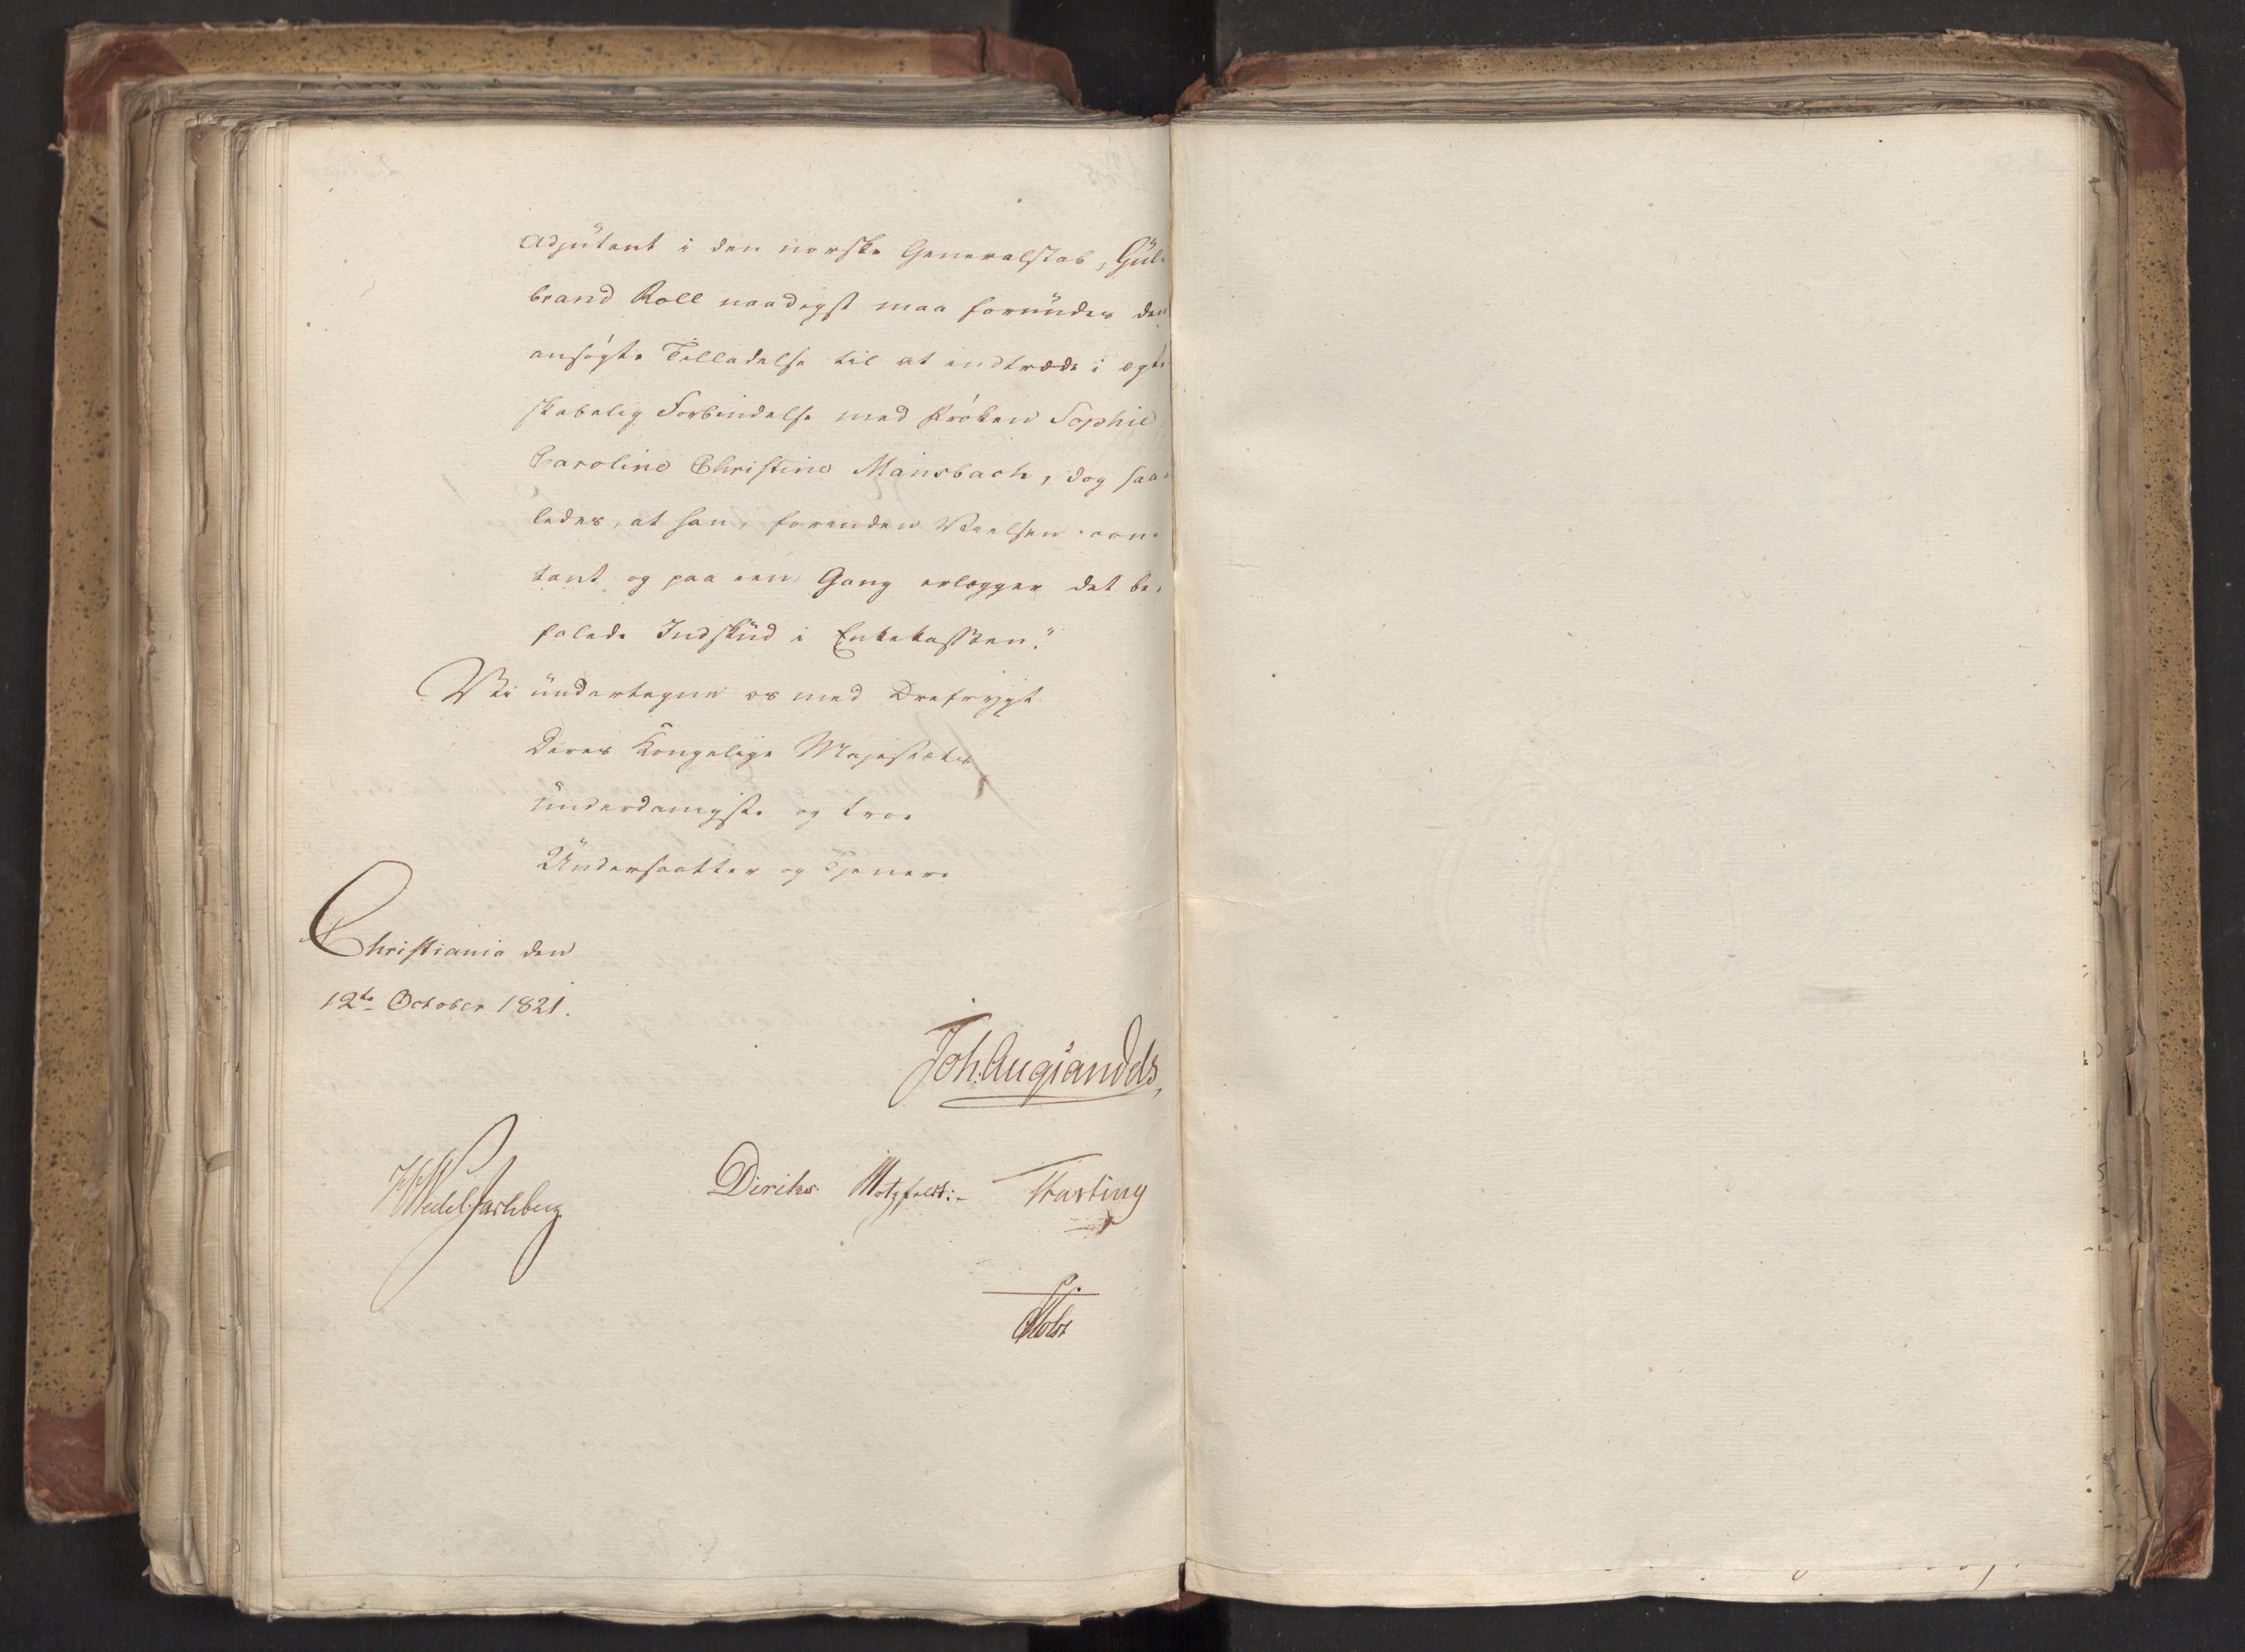 Adjutant i den norske Generalstab, Gul-
brand Roll naadigst maa forundes den
ansøgte Tilladelse til at indtræde i ægte
skabelig Forbindelse med Frøken Sophie
Caroline Christine Mansbach, dog saa-
ledes, at han, forinden Vielsen con-
tant og paa een Gang erlægger det be-
falede Indskud i Enkekassen."
Vi undertegne os med Ærefrygt
Deres Kongelige Majestæts
underdanigste og troe
Undersaatter og Tjenere
Christiania den
12te October 1821.
Joh. Aug. Sandels,
HWedel Jarlsberg Diriks. Motzfeldt.- Fasting
Holst